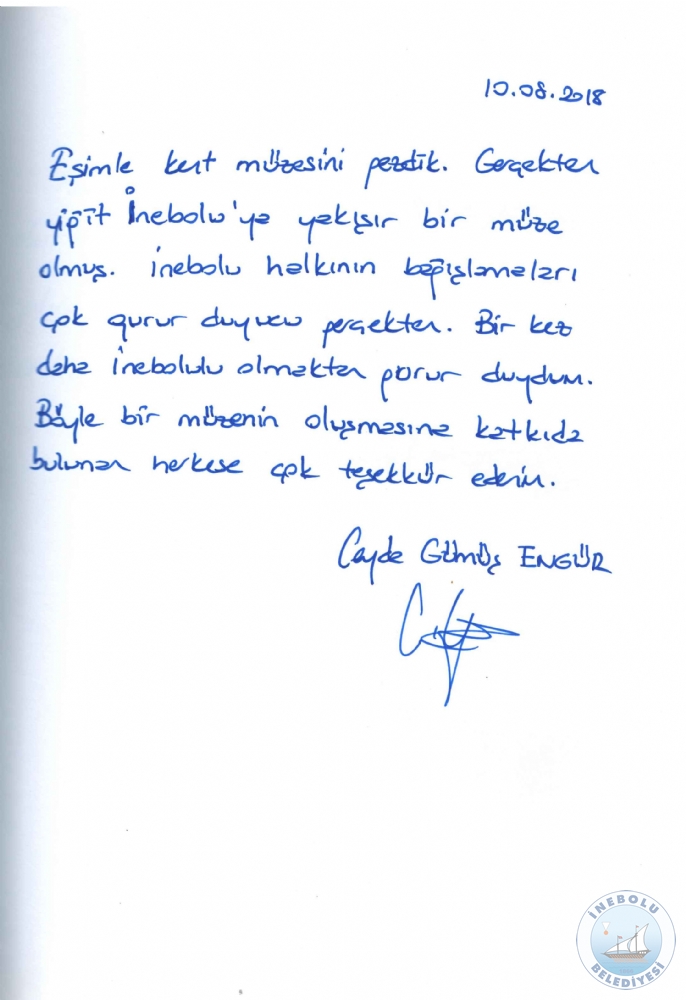 10.08.2018
Eşimle kent müzesini gezdik. Gerçekten
yiğit İnebolu'ya yakışır bir müze
olmuş. İnebolu halkının bağışlamaları
çok gurur duyucu gerçekten. Bir kez
daha İnebolulu olmaktan gurur duydum.
Böyle bir müzenin oluşmasına katkıda
bulunan herkese çok teşekkür ederim.
Cayde Gümüş ENGÜR
İNEBOLU
BELEDİYESİ